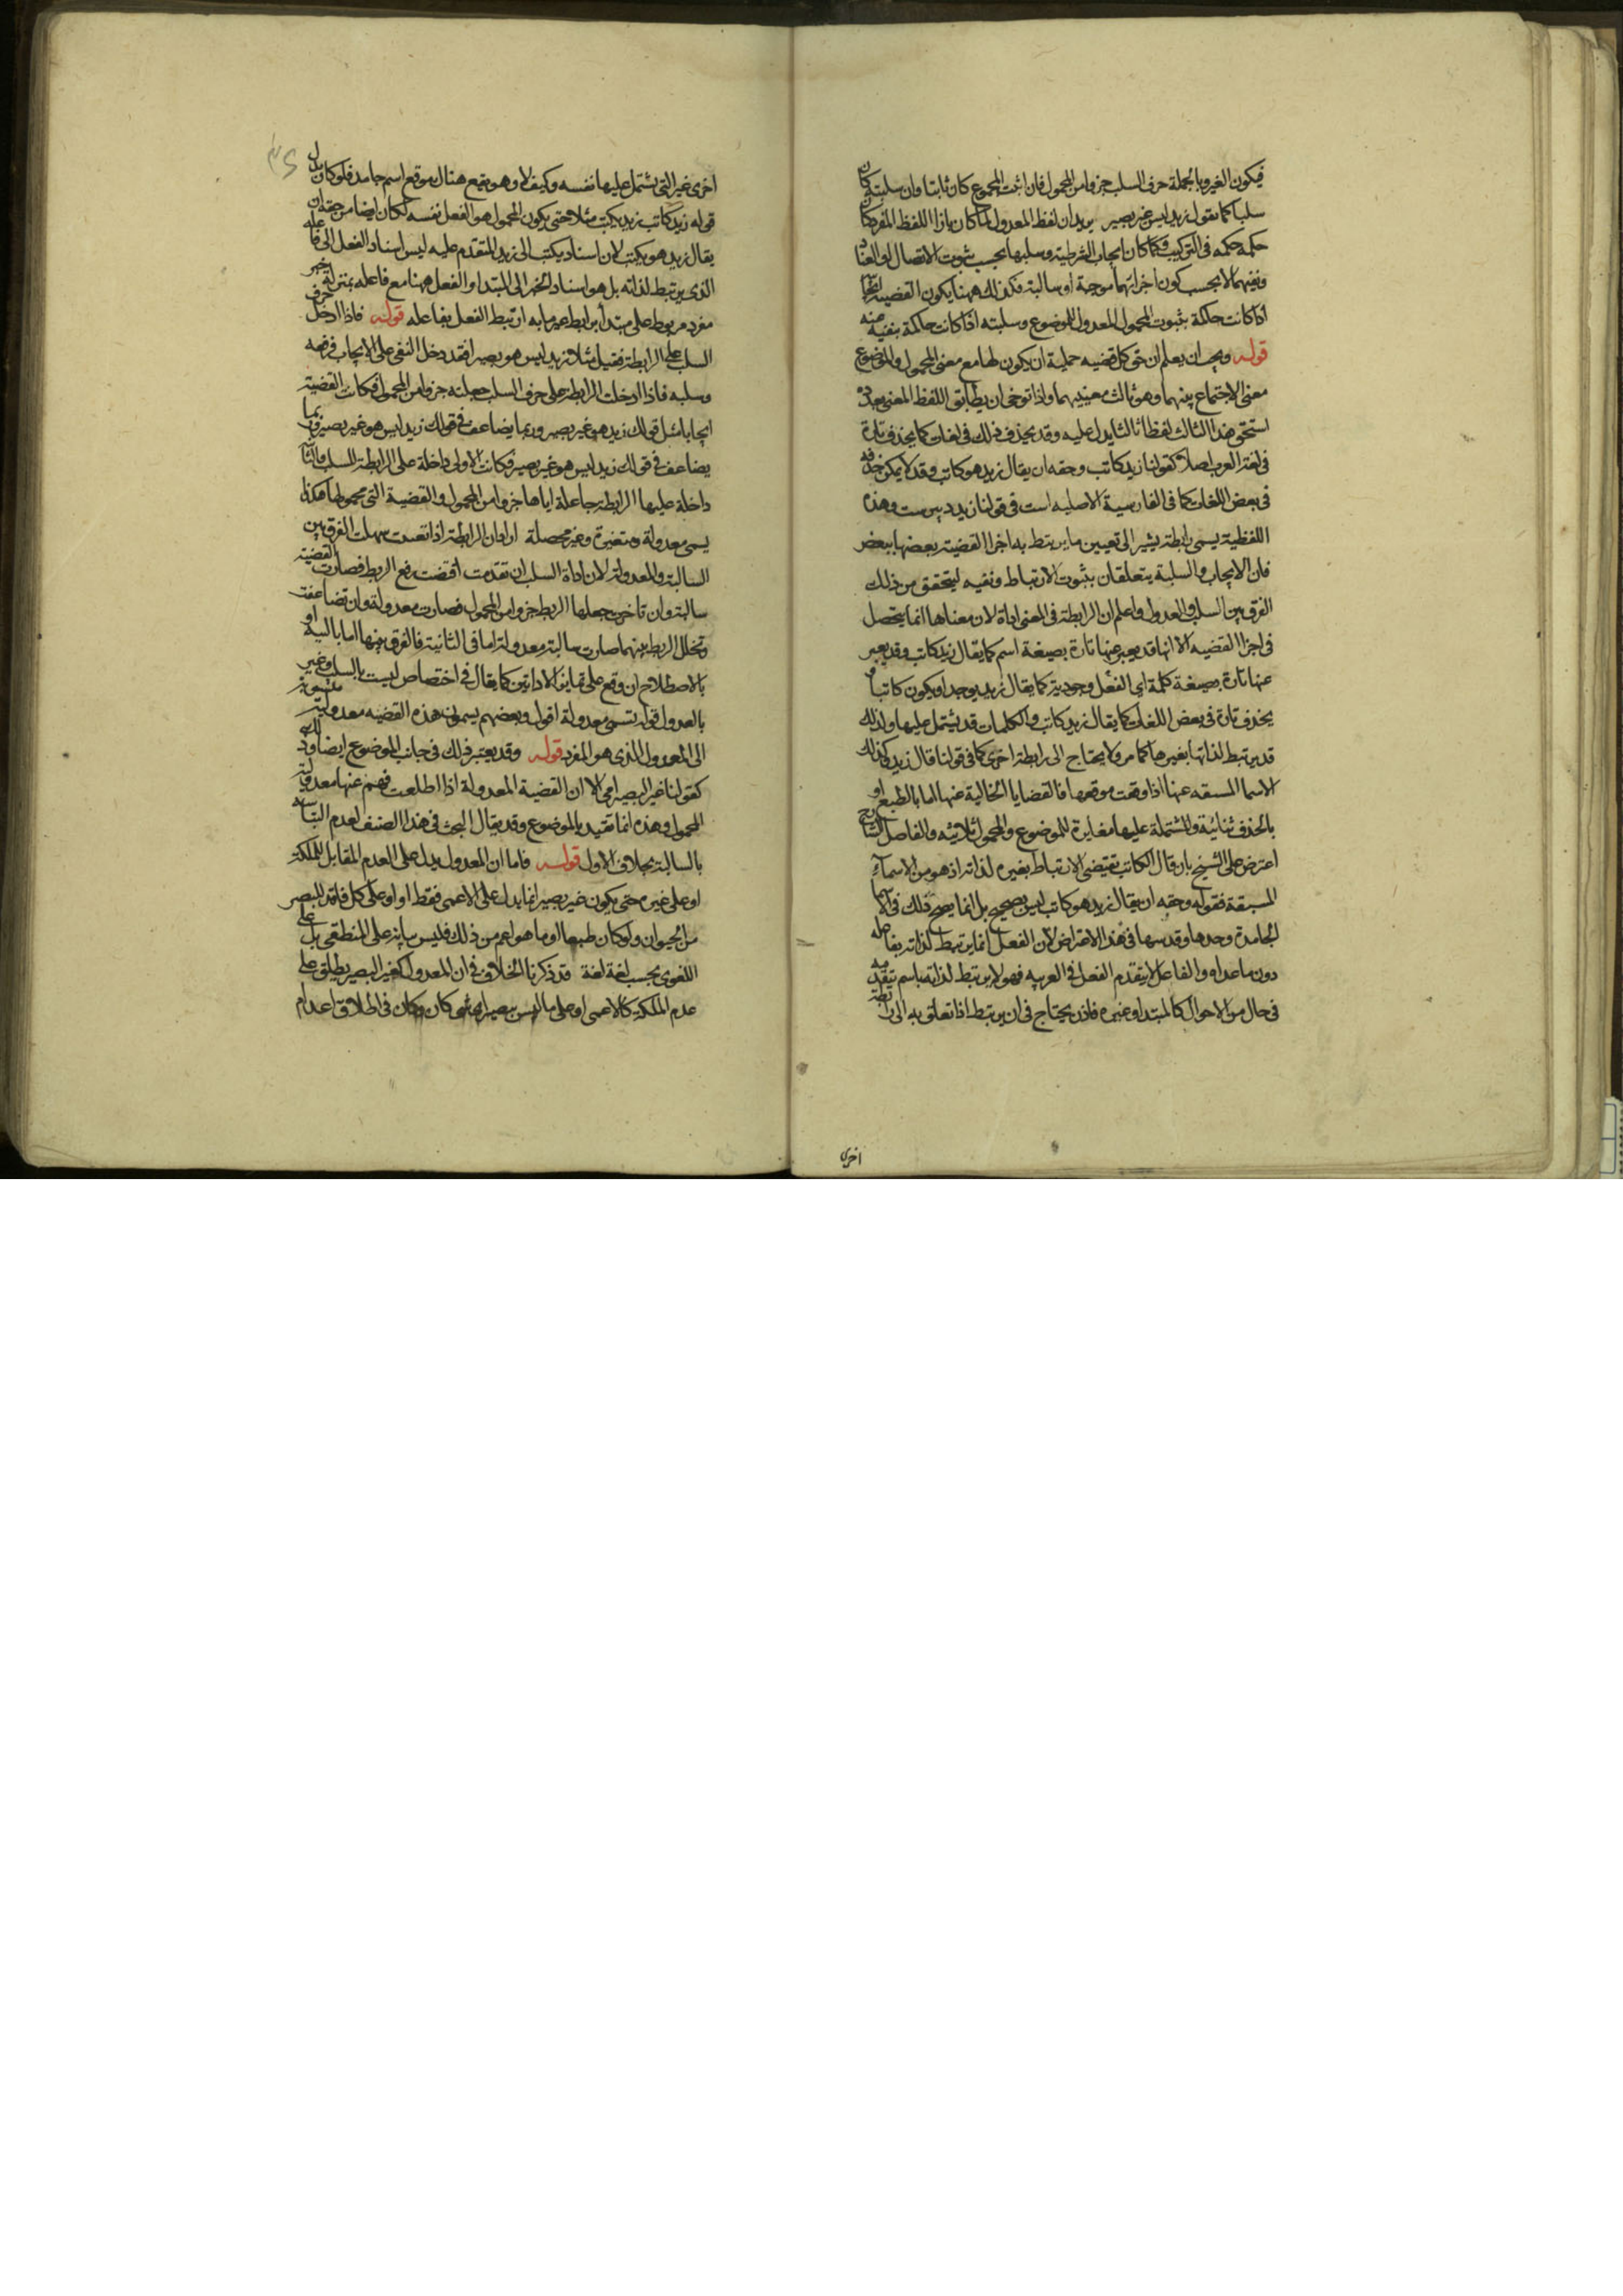 فيكون الغير وبالجملة حرف السلب جزوا من المحمول فان اثبت المجموع كان ثابتا وان سلبته كان
سلبا كما تقول زيد ليس غير بصير يريد ان لفظ المعدول لما كان بازاء اللفظ المفرد كان
حكمه حكمه في التركيب وكما كان ايجاب الشرطية وسلبها بحسب ثبوت الاتصال او العناد
ونفيهما لا بحسب كون اجزائهما موجبة او سالبة فكذلك ههنا يكون القضية ايجابا
اذا كانت حاكمة بثبوت المحمول المعدول للموضوع وسلبته اذا كانت حاكمة بنفيه عنه
قوله ويجب ان يعلم ان حق كل قضيه حملية ان يكون لها مع معنى المحمول والموضوع
معنى الاجتماع بينهما وهو ثالث معنييهما واذا توخى ان يطابق اللفظ المعنى بعدده
استحق هذا الثالث لفظا ثالثا يدل عليه وقد يحذف ذلك في لغات كما يحذف تارة
في لغة العرب اصلا كقولنا زيد كاتب وحقه ان يقال زيد هو كاتب وقد لا يمكن حذفه
في بعض اللغات كما في الفارسية الاصليه است في قولنا زيد دبيرست وهذه
اللفظية يسمى رابطة يشير الى تعيين ما يرتبط به اجزا القضية بعضها ببعض
فان الايجاب والسلبة يتعلقان بثبوت الارتباط ونفيه ليتحقق من ذلك
الفرق بين السلب والعدول واعلم ان الرابطة في المعنى اداة لان معناها انما يتحصل
في اجزا القضيه الا انها قد يعبر عنها تارة بصيغة اسم كما يقال زيد كاتب وقد يعبر
عنها تارة بصيغة كلمة اي الفعل وجودية كما يقال زيد يوجد او يكون كاتبا و
يحذف تارة في بعض اللغات كما يقال زيد كاتب والكلمات قد يشتمل عليها ولذلك
قد يرتبط لذاتها بغيرها كما مر ولا يحتاج الى رابطة اخرى كما في قولنا قال زيد كذلك
الاسما المسبقه عنها اذا وقعت موقعها فالقضايا الخالية عنها اما بالطبع او
بالحذف ثنائية والمشتملة عليها مغايرة للموضوع والمحمول ثلاثيه والفاضل الشارح
اعترض على الشيخ بان قال الكاتب يقتضى الارتباط بغيره لذاته اذ هو من الاسماء
المسبقة فقوله وحقه ان يقال زيد هو كاتب ليس بصحيح بل انما يصح ذلك في الاسما
الجامدة وحدها وقد سها في هذا الاعتراض لان الفعل انما يرتبط لذاته بفاعله
دون ما عداه والفاعل لا يتقدم الفعل في العربيه فهو لا يرتبط لذاته باسم يتقدمه
في حال من الاحوال كالمبتدا وغيره فاذن يحتاج في ان يرتبط اذا تعلق به الى رابطة
اخرى
اخرى غير التي يشتمل عليها نفسه وكيف لا وهو يقع هنال موقع اسم جامد فلو كان بدل
قوله زيد كاتب زيد يكتب مثلا حتى يكون المحمول هو الفعل نفسه لكان ايضا من حقه ان
يقال زيد هو يكتب لان اسناد يكتب الى زيد المتقدم عليه ليس اسناد الفعل الى فاعله
الذي يرتبط لذاته بل هو اسناد الخبر الى المبتدا والفعل ههنا مع فاعله بمنزلة خبر
مفرد مربوط على مبتدأ برابط غير ما به ارتبط الفعل بفاعله قوله فاذا ادخل حرف
السلب على الرابطة فقيل مثلا زيد ليس هو بصيرا فقد دخل النفى على الايجاب فرفعه
وسلبه فاذا ادخلت الرابطة على حرف السلب جعلته جزوا من المحمول فكانت القضية
ايجابا مثل قولك زيد هو غير بصير وربما يضاعف في قولك زيد ليس هو غير بصير وربما
يضاعف في قولك زيد ليس هو غير بصير فكانت الاولى داخلة على الرابطة للسلب والثانية
داخلة عليها الرابطة جاعلة اياها جزوا من المحمول والقضية التي محمولها هكذا
يسمى معدولة ومتغيرة وغير محصلة اراد ان الرابطة اذا تعينت سهلت الفرق بين
السالبة والمعدولة لان اداة السلب ان تقدمت اقتضت رفع الربط فصارت القضية
سالبة وان تاخرت جعلها الربط جزوا من المحمول فصارت معدولة وان تضاعفت
وتخلل الربط بينهما صارت سالبة معدولة اما في الثانية فالفرق بينها اما بالنية او
بالاصطلاح ان وقع على تمايز الاداتين كما يقال في اختصاص ليست بالسلب وغير
بالعدول قوله تسمى معدولة اقول وبعضهم يسمون هذه القضيه معدولية منسوبة
الى المعدول الذي هو المفرد قوله وقد يعتبر ذلك في جانب الموضوع ايضا وذلك
كقولنا غير البصير امي الا ان القضية المعدولة اذا اطلقت فهم عنها معدولية
المحمول وهذه انما تقيد بالموضوع وقد يقال البحث في هذا الصنف لعدم التباسه
بالسالبة بخلاف الاول قوله فاما ان المعدول يدل على العدم المقابل للملكة
او على غيره حتى يكون غير بصير انما يدل على الاعمى فقط او او على كل فاقد للبصر
من الحيوان ولو كان طبعها او ما هو اعم من ذلك فليس بيانه على المنطقى بل على
اللغوى بحسب لغة لغة قد ذكرنا الخلاف في ان المعدول كغير البصير يطلق على
عدم الملكة كالاعمى او على ما ليس ببصير اي شي كان وكان في اطلاق اعدام